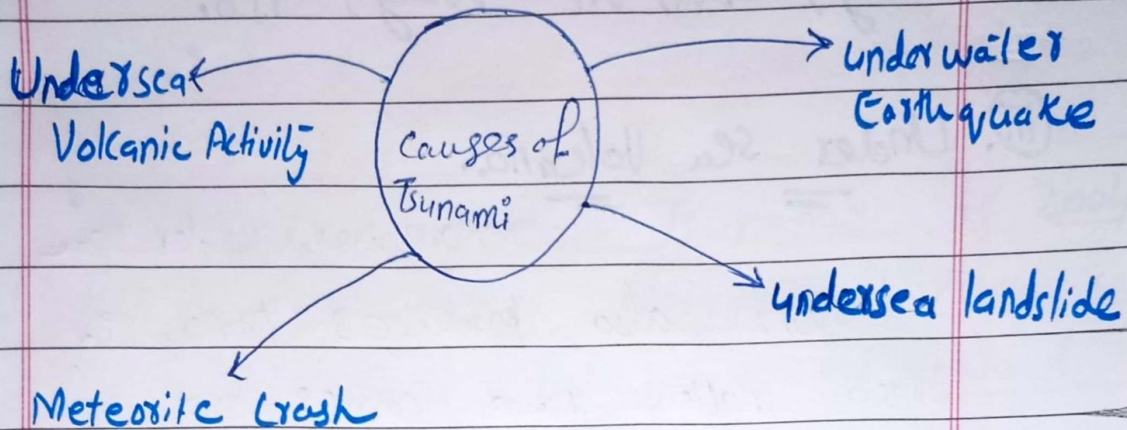 Undersea
Volcanic Activity
Causes of
Tsunami
underwater
Earthquake
undersea landslide
Meteorite Crash